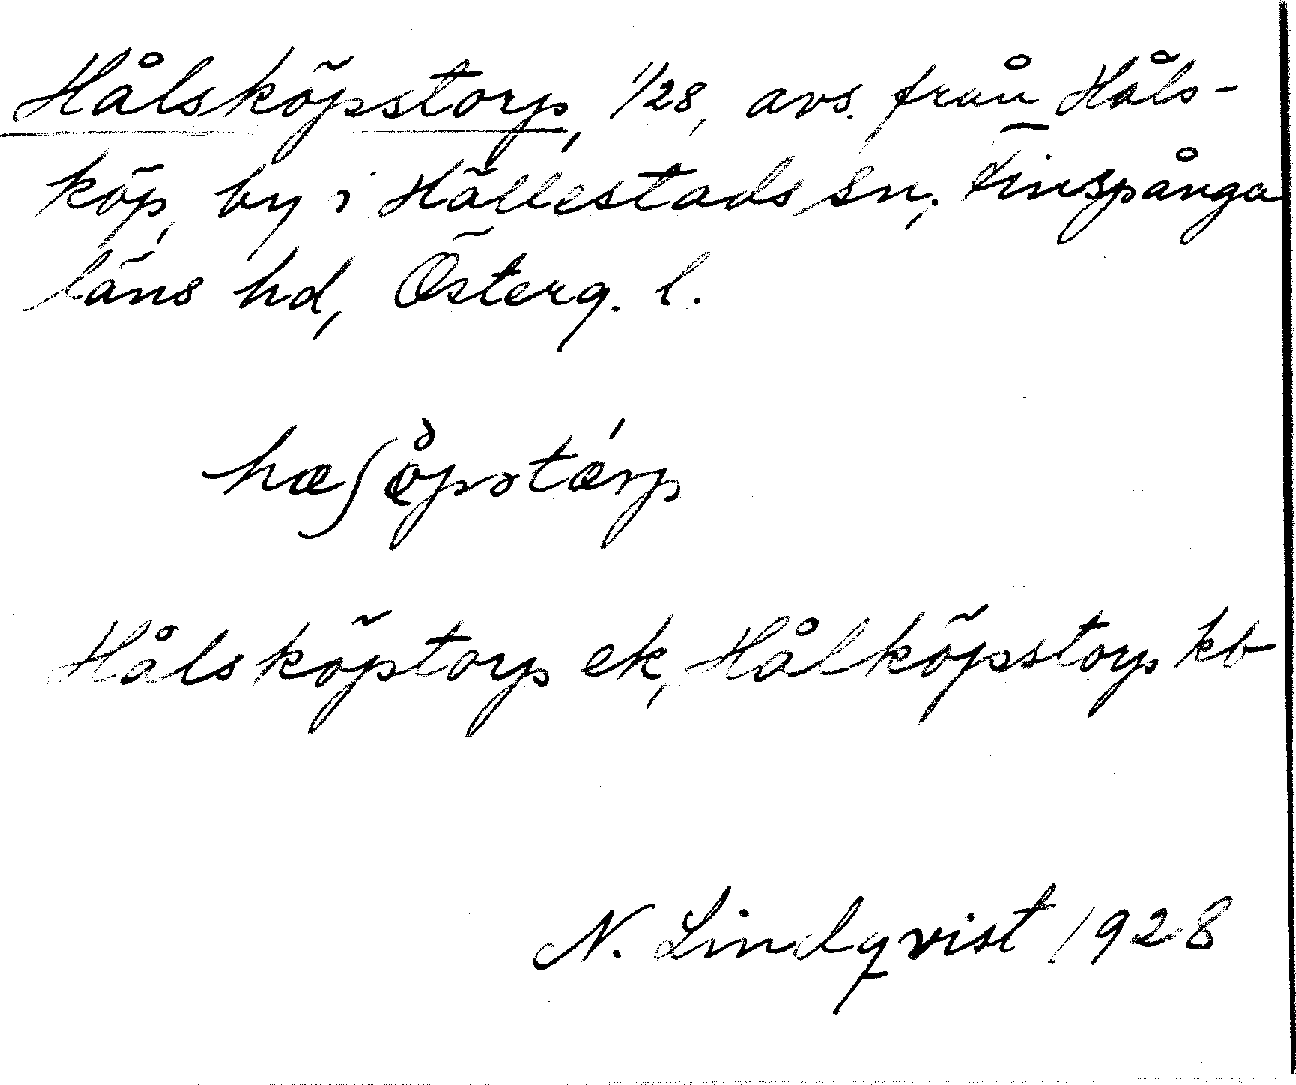 Hålsköpstorp, 1/28, avs. från Håls-
köp, by i Hällestads sn, Finspånga
läns hd, Österg. l.
Hålsköptorp ek, Hålköpstorp kb
N. Lindqvist 1928